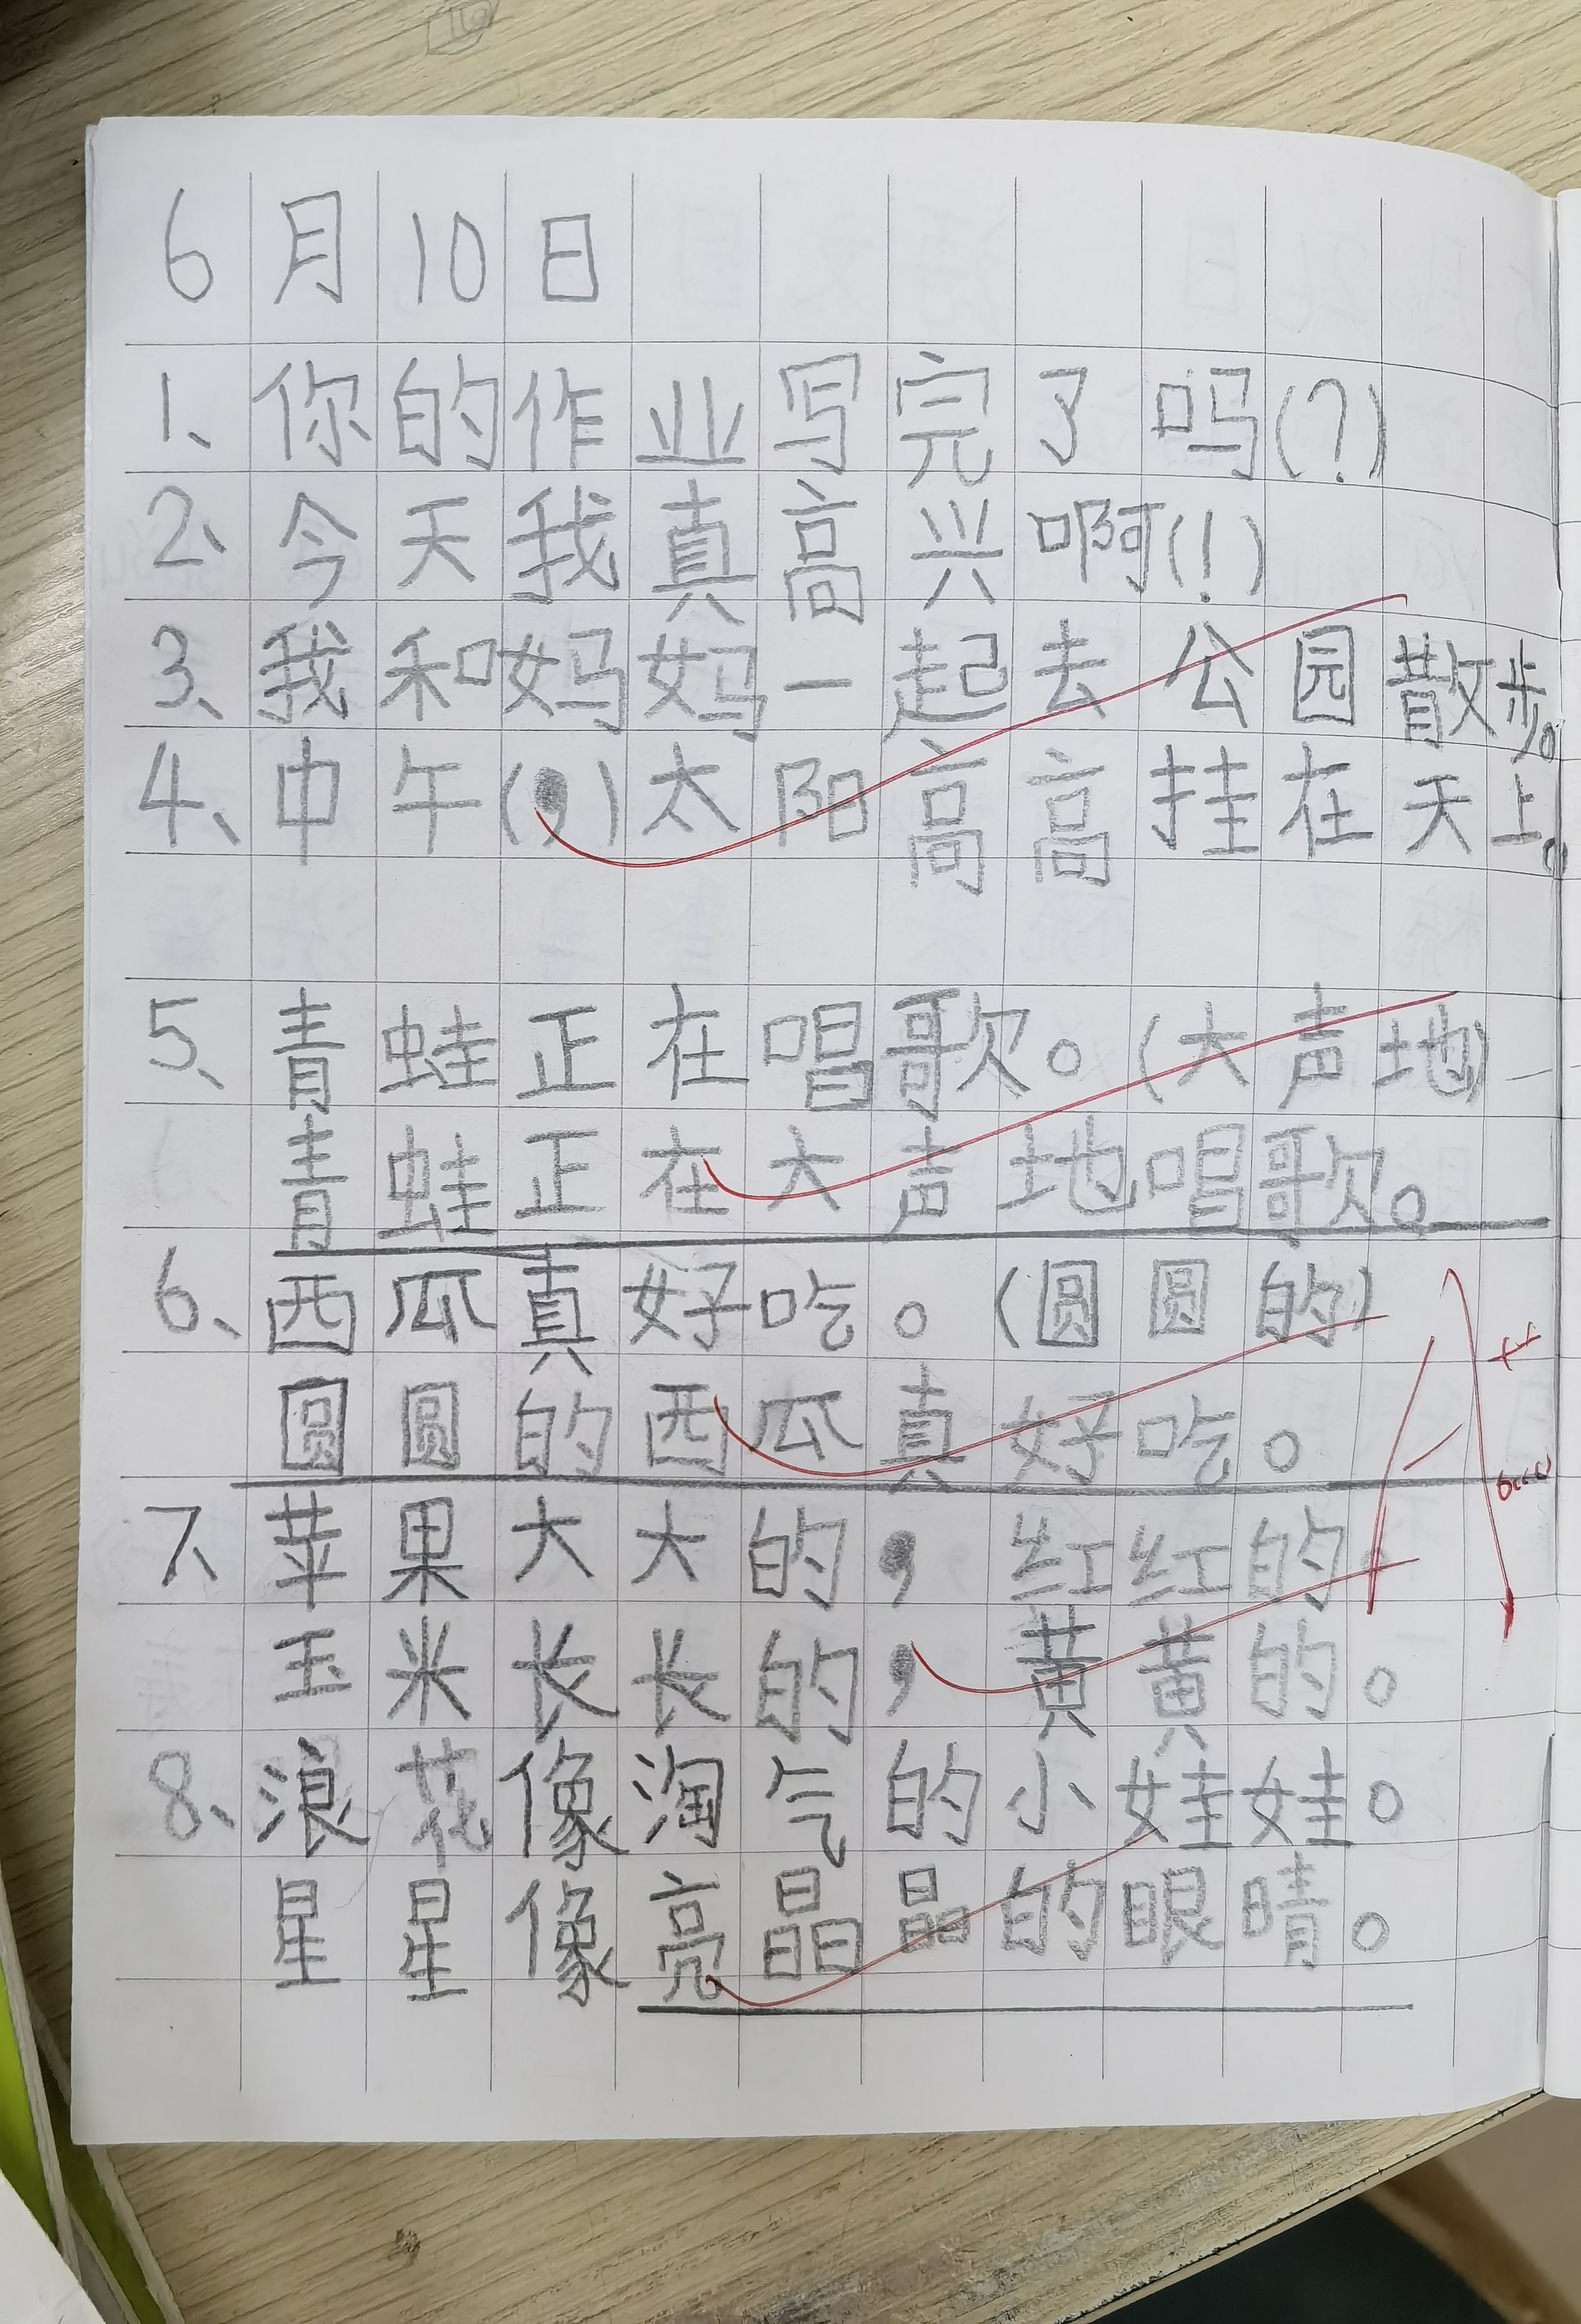 6月10日
1、你的作业写完了吗(?)
2、今天我真高兴啊(!)
3、我和妈妈一起去公园散步。
4、中午(,)太阳高高挂在天上。
5、青蛙正在唱歌。(大声地)
青蛙正在大声地唱歌。
6、西瓜真好吃。(圆圆的)
圆圆的西瓜真好吃。
7、苹果大大的,红红的。
玉米长长的,黄黄的。
8、浪花像淘气的小娃娃。
星星像亮晶晶的眼睛。